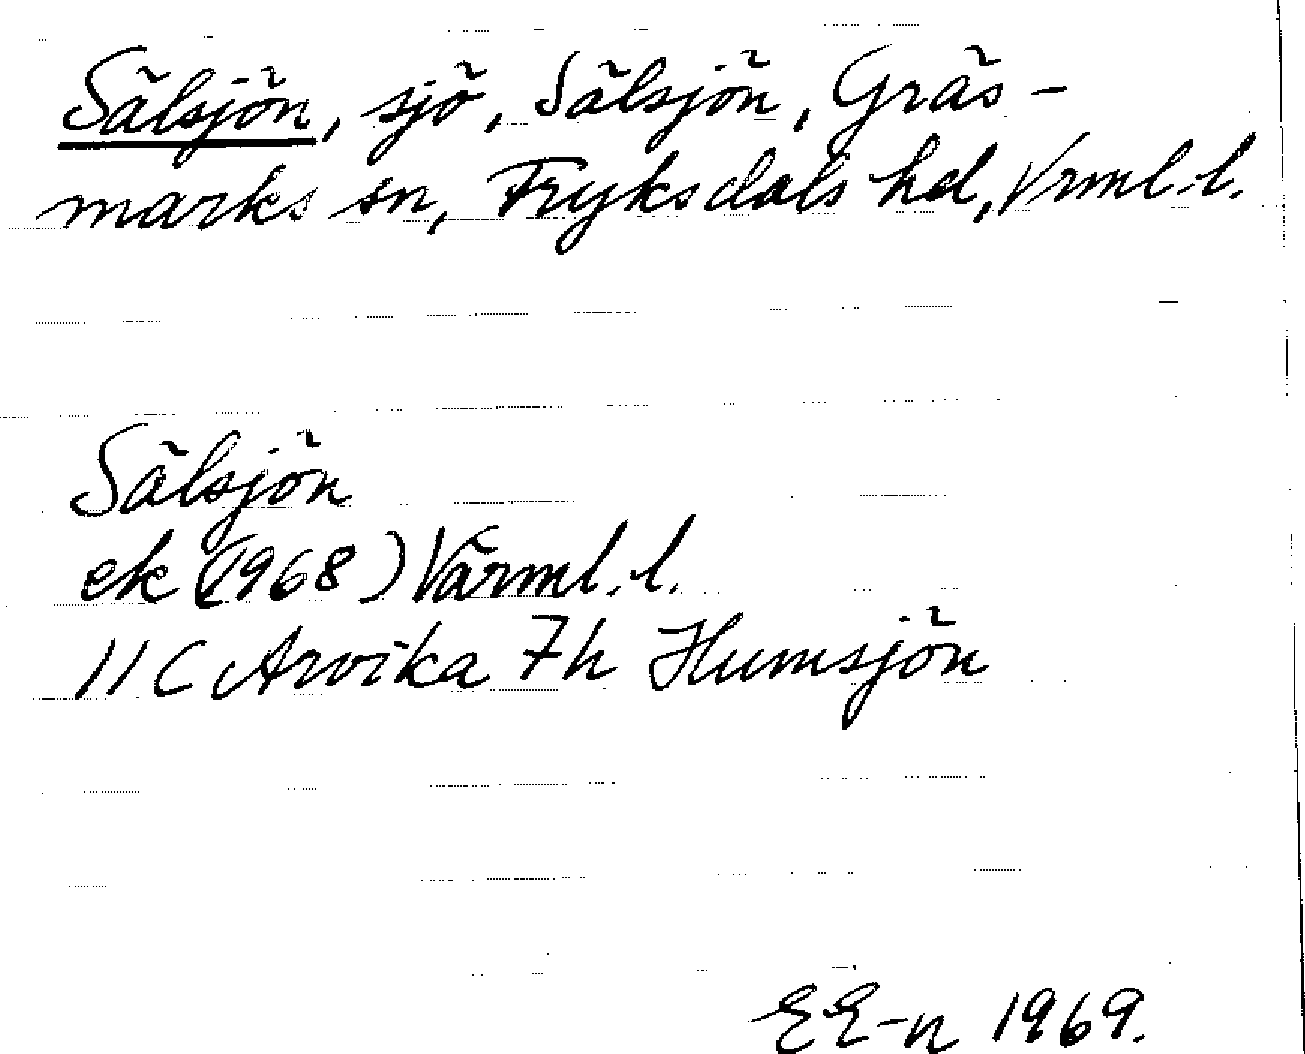 Sälsjön, sjö, Sälsjön, Gräs-
marks sn, Fryksdals hd, Vrml.l.
Sälsjön
ek (1968) Värml.l.
11C Arvika 7h Humsjön
EE-n 1969.